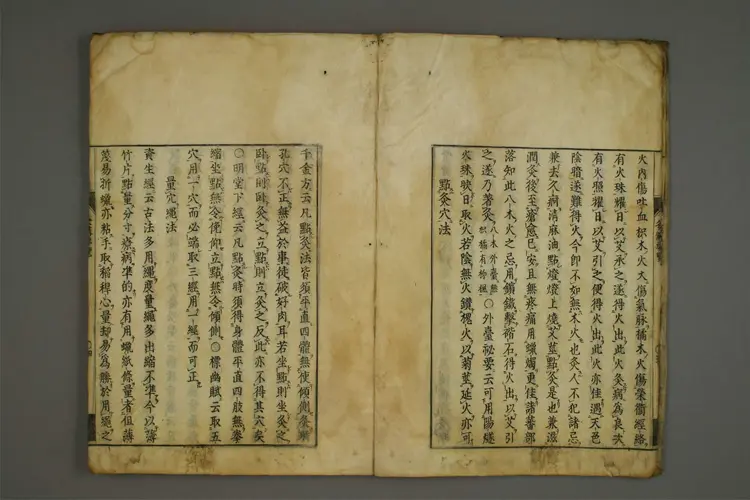 火內傷吐血枳木火大傷氣脉橘木火傷榮衛經絡
有火珠耀日以艾承之遂得火出此火灸病爲良次
有火照耀日以艾引之便得火出此火亦佳遇天色
陰暗遂難得火今即不如無木火也灸人不犯諸忌
兼去久痾清麻油點燈燈上燒艾莖點灸是也兼滋
潤灸後至瘡愈已安且無疼痛用蠟燭更佳諸蕃部
落知此八木火之忌用鑌鐵擊石得火出以艾引
之遂乃著灸八木外臺無枳橘有
○外臺祕要云可用陽燧
火珠映日取火若陰無火鑽槐火以菊莖延火亦可
點灸穴法
千金方云凡點灸法皆須平直四體無使傾側灸時
孔穴不正無益於事徒破好肉耳若坐點則坐灸之
卧點則卧灸之立點則立灸之反此亦不得其穴矣
○明堂下經云凡點灸時須得身體平直四肢無拳
縮坐點無令俯仰立點無令傾側○標幽賦云取五
穴用一穴而必端取三經用一經而可正
量穴繩法
資生經云古法多用繩度量繩多出縮不準今以薄
竹片點量分寸療病準的亦有用蠟紙條量者但薄
篾易折蠟亦粘手取稻稈心量却易爲勝於用繩之